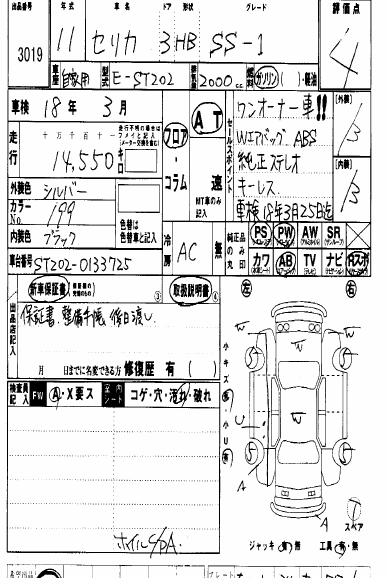 出品番号 年式 車名 ドア 形状 グレード 評価点
3019 11 セリカ 3 HB SS-1 4
車歴 自家用 型式 E-ST202 排気量 2000cc 燃料 ガソリン ( )・軽油
車検 18年 3月
走行 十万千百十一 走行不明の場合はフメイと記入 (メーター交換を含む)
14,550 キロ
外装色 シルバー
カラーNo. 199
色替は色替車と記入
内装色 ブラック
フロア・コラム AT 速 MT車のみ記入
冷房 AC 無
セールスポイント
ワンオーナー車!!
Wエアバッグ ABS
純正ステレオ
キーレス
車検18年3月25日迄
[外装] B
[内装] B
純正品の丸印 PS PW AW SR
カワ AB TV ナビ エアロ
車台番号 ST202-0133725
左 右
出品店記入
新車保証書 ③ 取扱説明書 ④
保証書、整備手帳 後日渡し
月 日までに名変できる方 修復歴 有 ( )
検査員記入 FW A・X要ス 室内シート コゲ・穴・汚れ・破れ
ホイルC/PA
小キズ 小U
W W W W
U
5 5 5 5
A A
T スペア
ジャッキ 有・無 工具 有・無